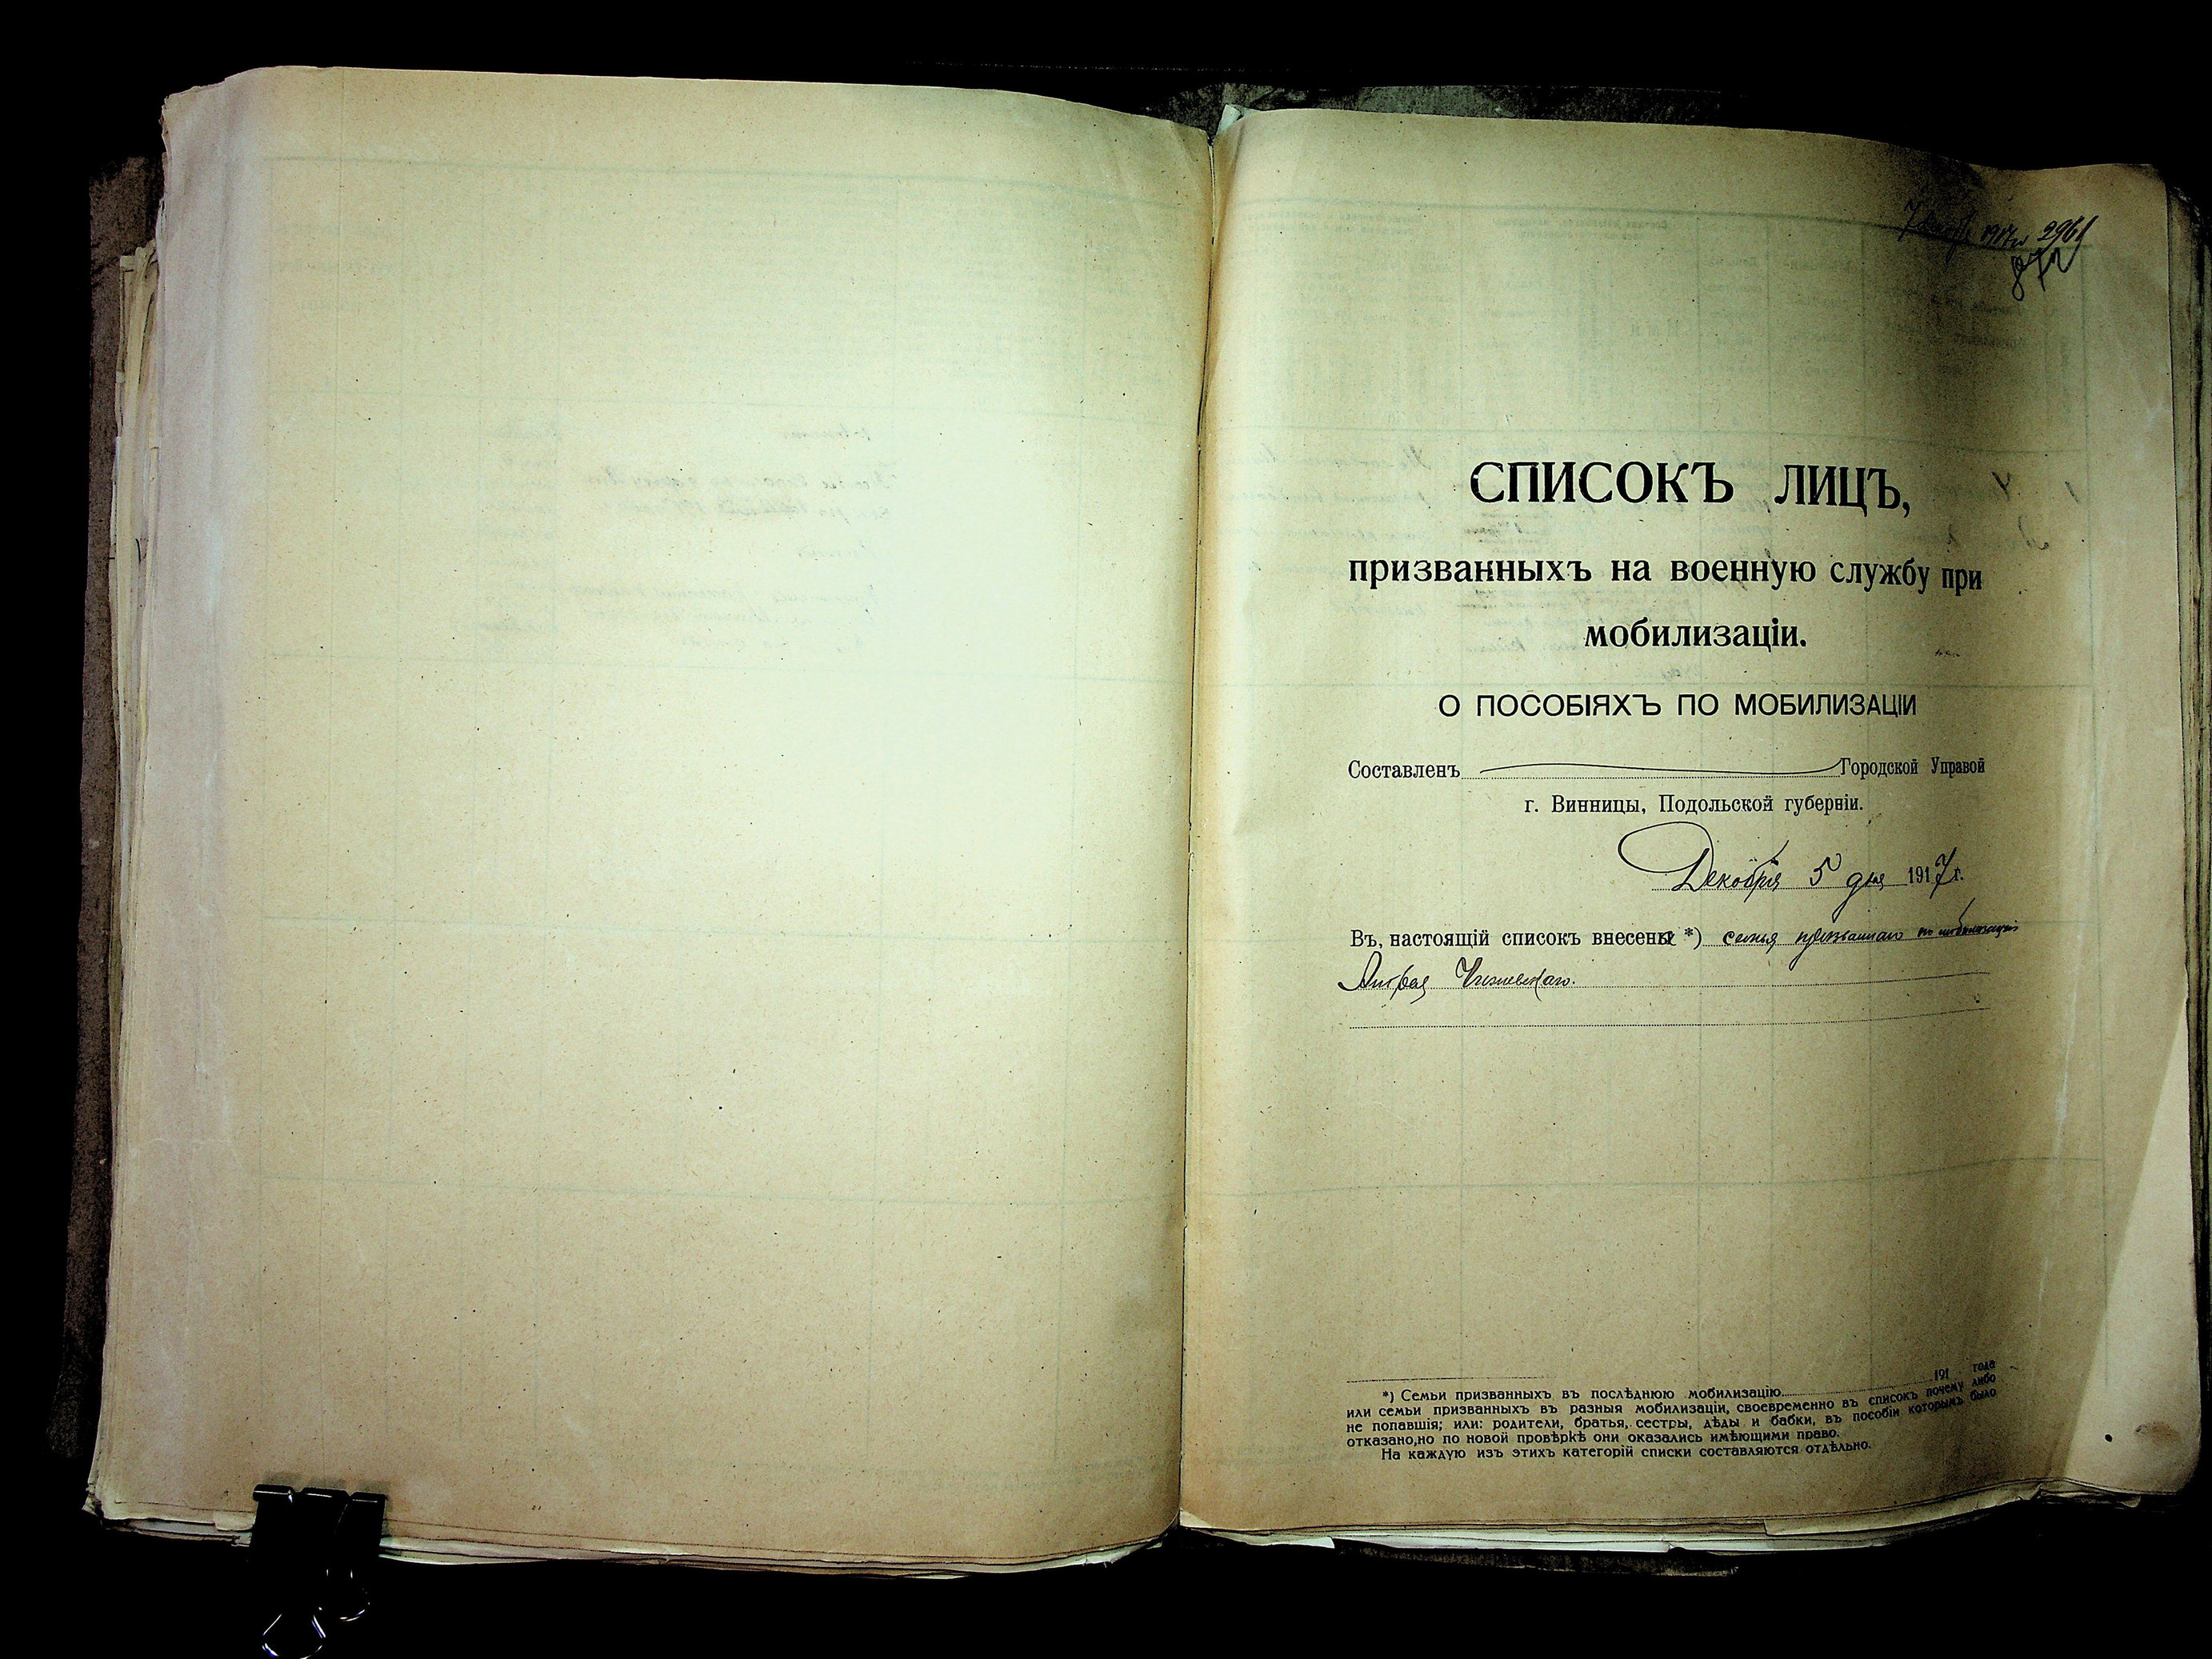 7 Декабр 1917 г 2961
872
СПИСОКЪ ЛИЦЪ,
призванныхъ на военную службу при
мобилизаціи.
О ПОСОБІЯХЪ ПО МОБИЛИЗАЦІИ
Составленъ Городской Управой
г. Винницы, Подольской губерніи.
Декабря 5 дня 1917 г.
Въ, настоящій списокъ внесена *) семья призваннаго по мобилизаціи
Чижевскаго.
*) Семьи призванныхъ въ послѣднюю мобилизацію 191 года
или семьи призванныхъ въ разныя мобилизаціи, своевременно въ списокъ почему либо
не попавшія; или: родители, братья, сестры, дѣды и бабки, въ пособіи которымъ было
отказано,но по новой провѣркѣ они оказались имѣющими право.
На каждую изъ этихъ категорій списки составляются отдѣльно.